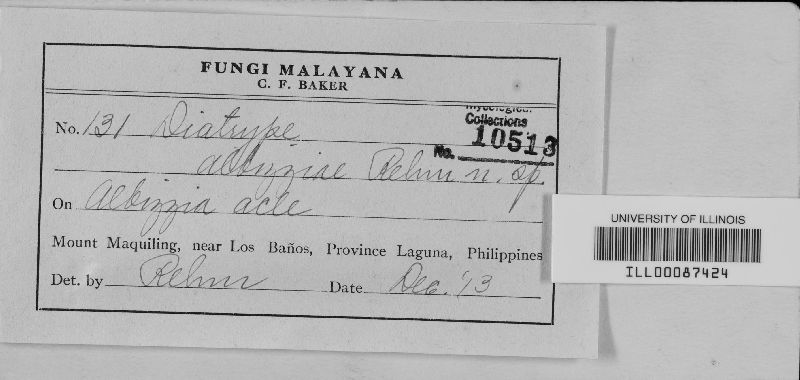 FUNGI MALAYANA
C. F. BAKER
Mycological
Collections
No. 10513
No. 131 Diatrype
albizziae Rehm n. sp.
On Albizzia acle
Mount Maquiling, near Los Baños, Province Laguna, Philippines
Det. by Rehm Date Dec. '13
UNIVERSITY OF ILLINOIS
ILL00087424